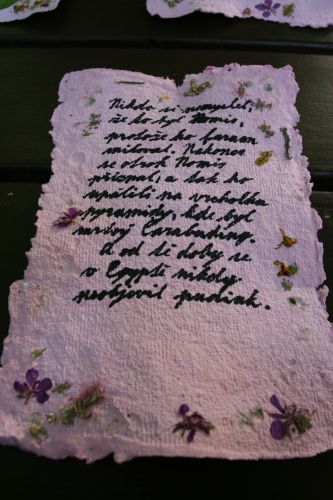 Nikdo si nemyslel,
že to byl Itomis,
protože ho faraon
miloval. Nakonec
se otrok Itomis
přiznal, a tak ho
upálili na vrcholku
pyramidy, kde byl
mrtvý Carabading.
A od té doby se
v Egyptě nikdy
neobjevil padiak.